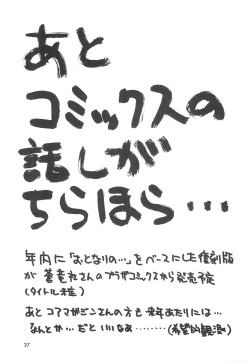 あと
コミックスの
話しが
ちらほら…
年内に「おとなりの…」をベースにした復刻版
が蒼竜社さんのプラザコミックスから発売予定
(タイトル未定)
あとコアマガジンさんの方も来年あたりには…
なんとか…だといいなぁ………(希望的観測)
37